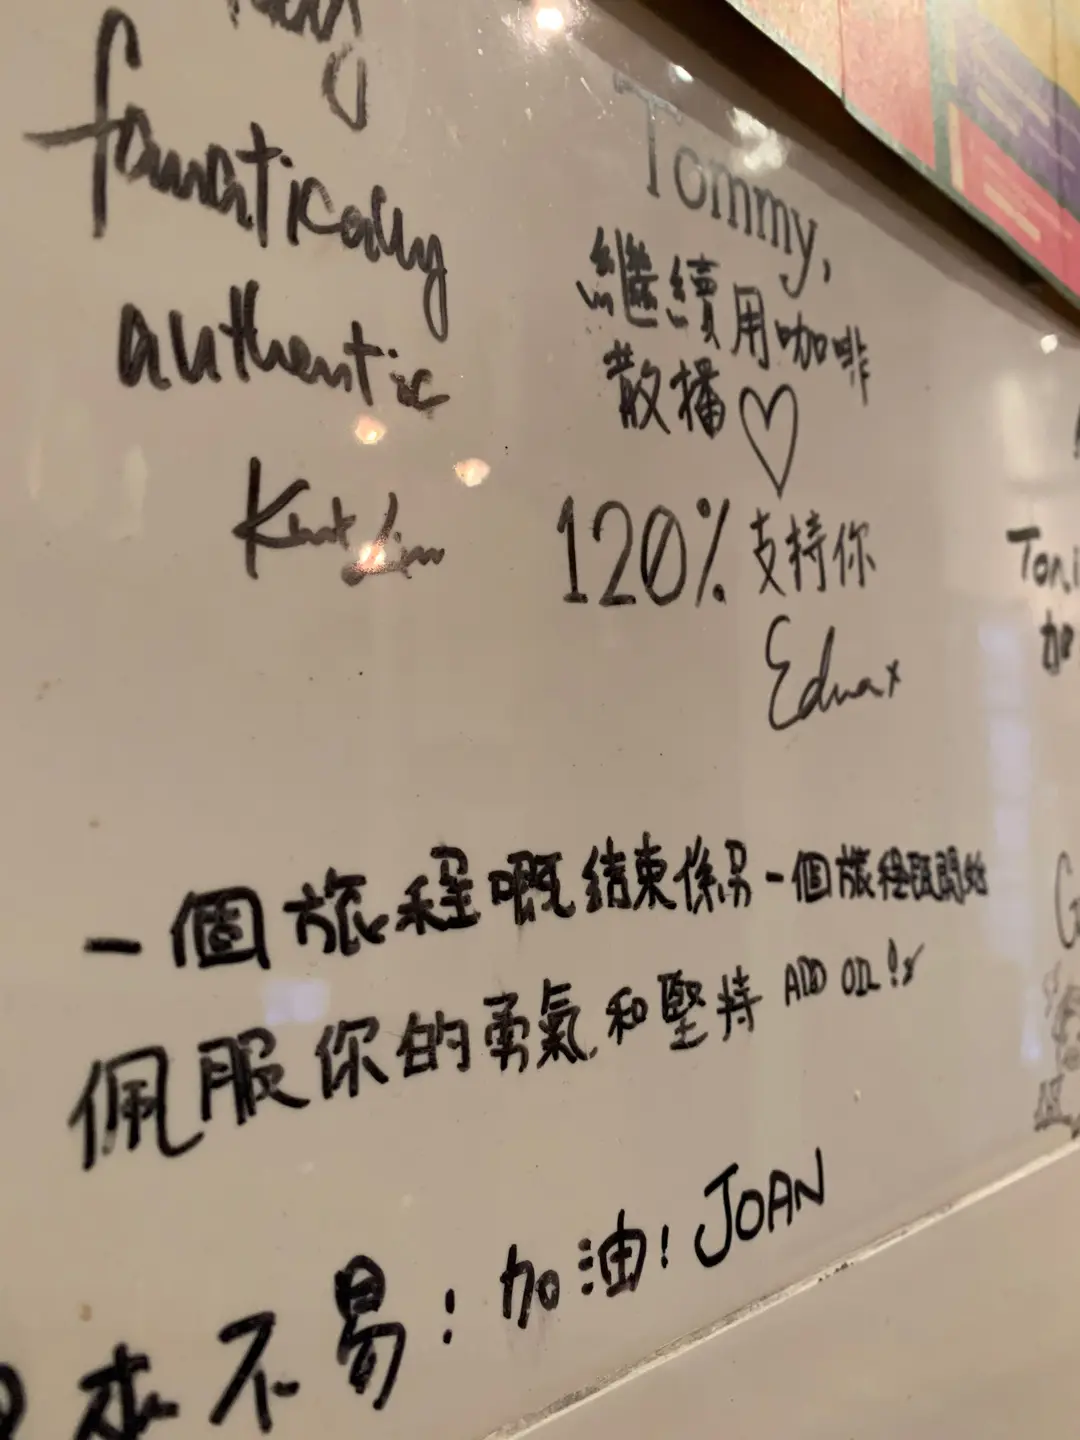 fanatically
authentic
Tommy,
繼續用咖啡
散播♡
120% 支持你
Edna x
一個旅程嘅結束係另一個旅程嘅開始
佩服你的勇氣和堅持 ADD OIL!
來不易! 加油! JOAN
Toni
加